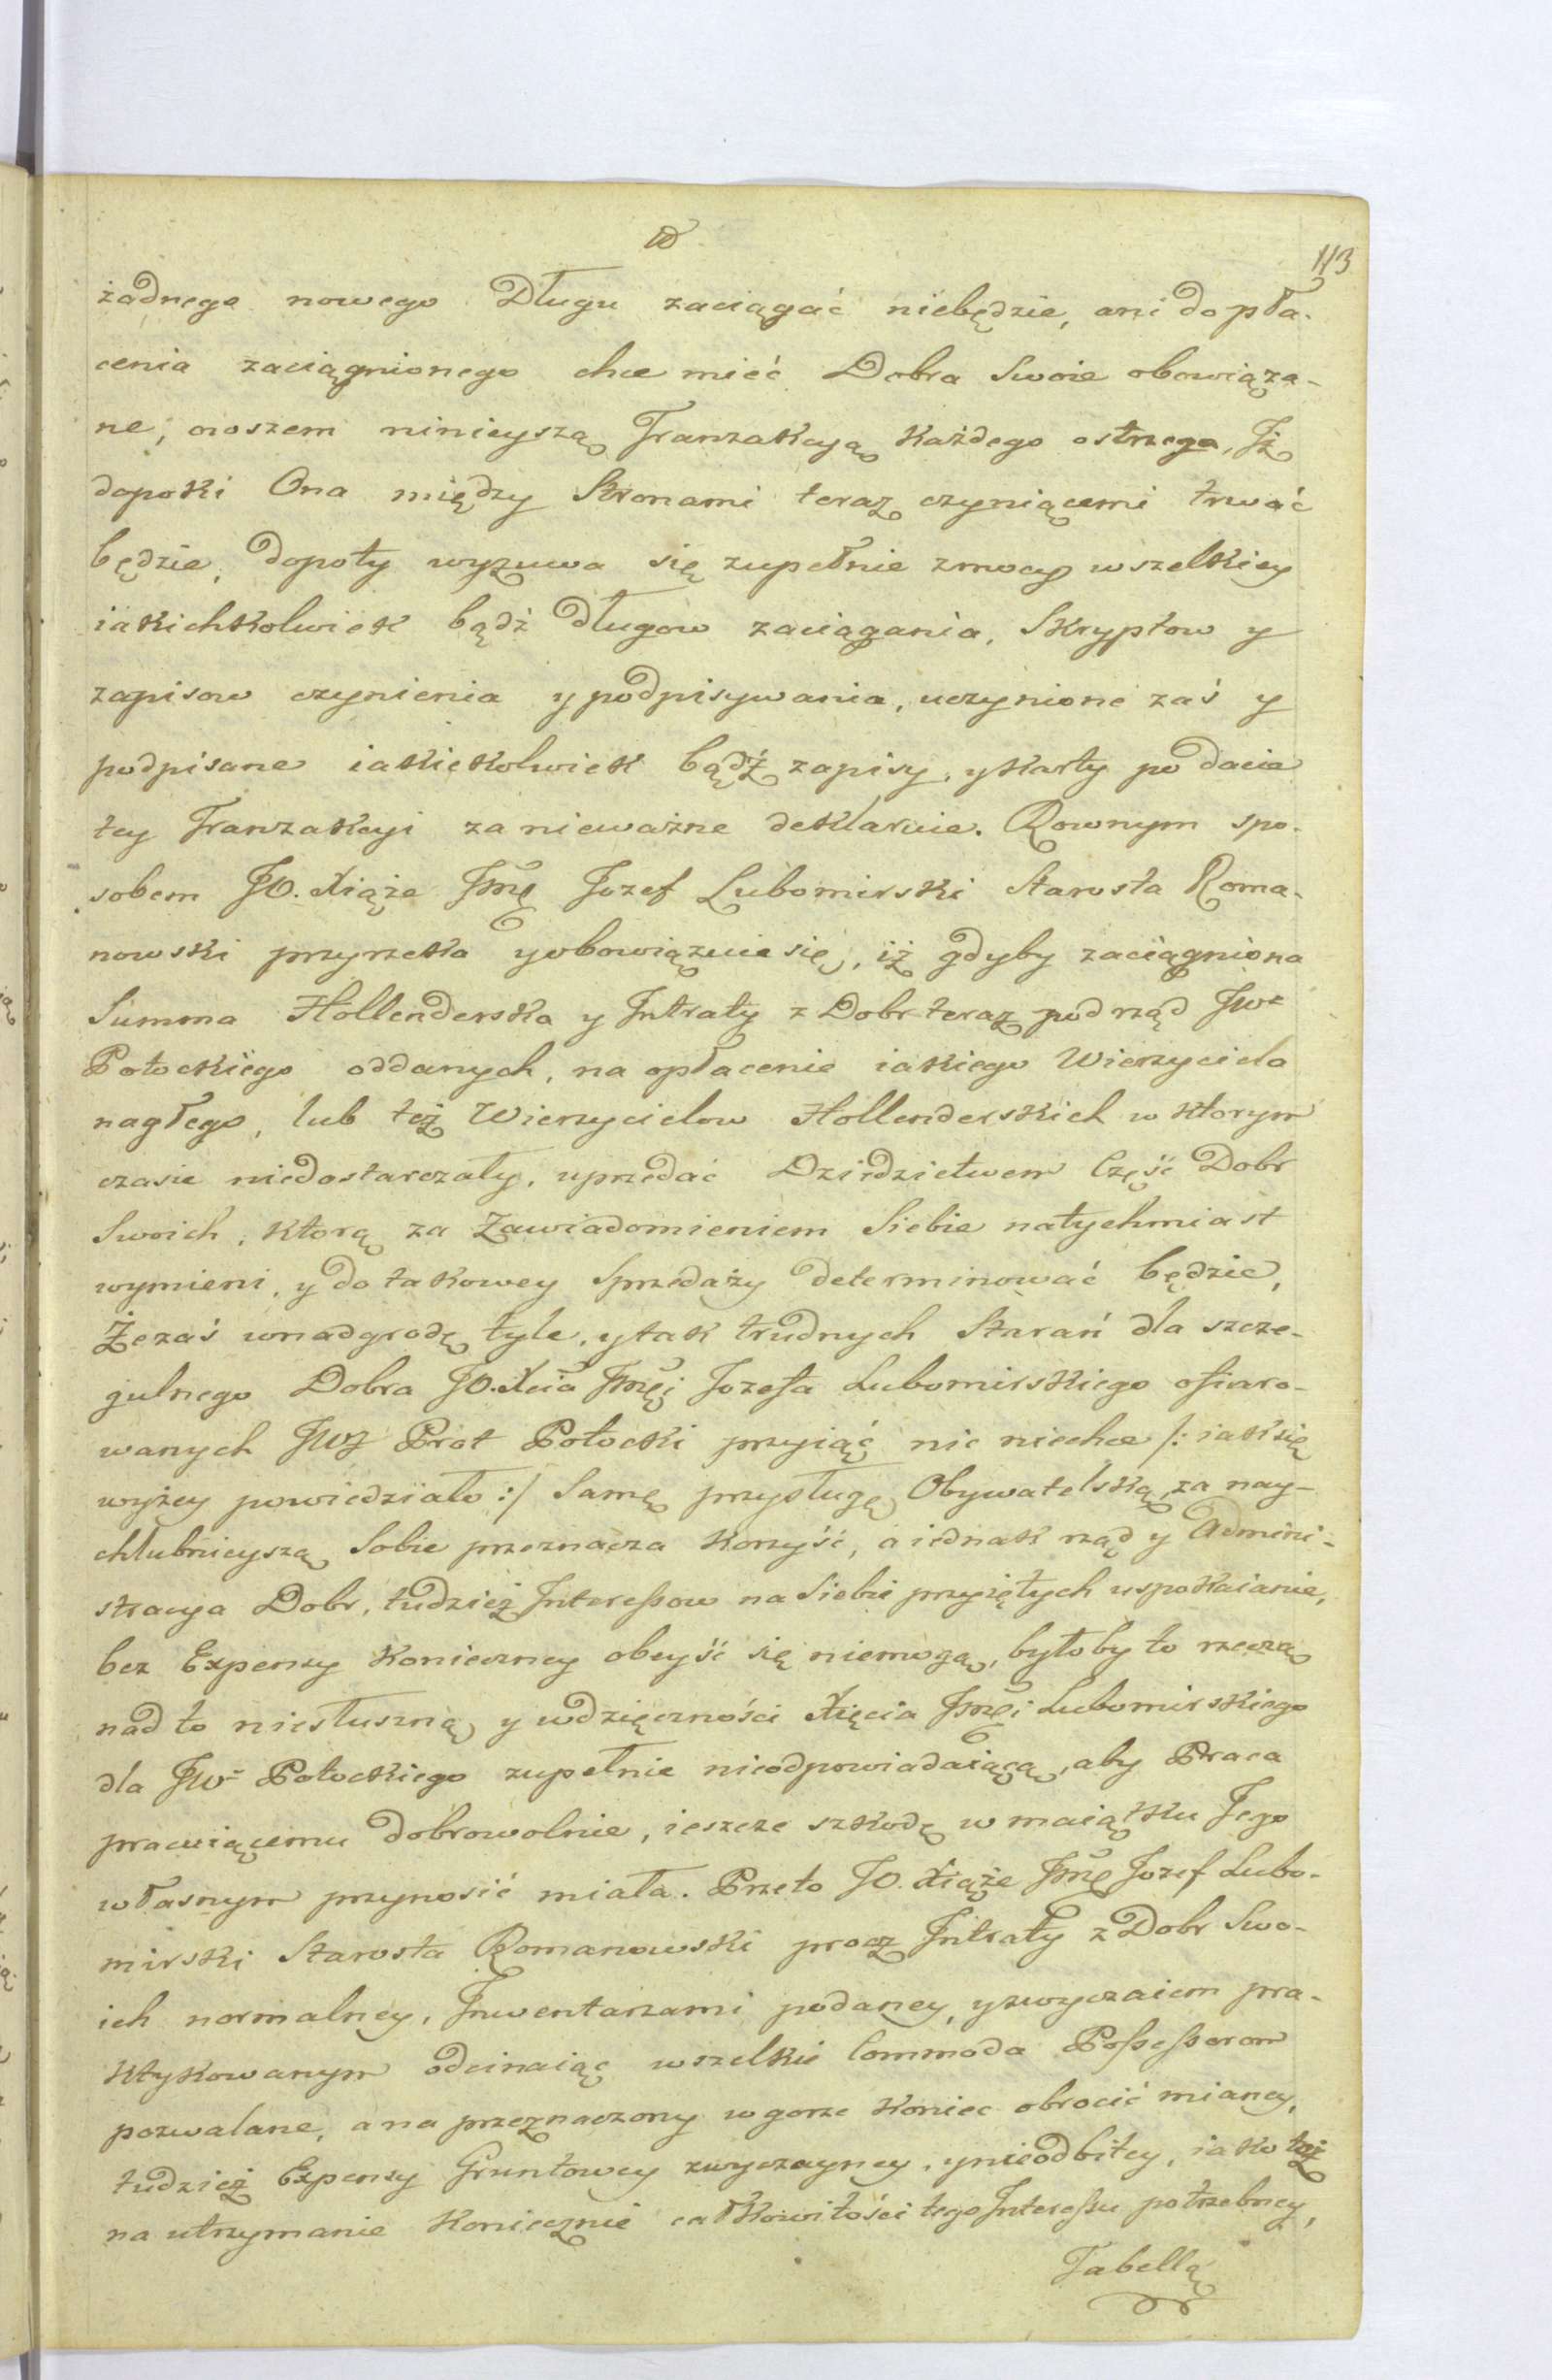 113
żadnego nowego Długu zaciągać niebędzie, ani do pła-
cenia zaciągnionego chce mieć Dobra Swoie obowiąza-
ne, owszem ninieyszą Tranzakcyą każdego ostrzega, Jż
dopoki Ona między Stronami teraz czyniącemi trwać
będzie, dopoty wyzuwa się zupełnie zmocy wszelkiey
iakichkolwiek bądź Długow zaciągania, Skryptow y
zapisow czynienia y podpisywania, uczynione zaś y
podpisane iakiekolwiek bądź zapisy, y karty po dacie
tey Tranzakcyi za nieważne deklaruie. Rownym spo-
sobem JO. Xiąże Jmć Jozef Lubomirski Starosta Roma-
nowski przyrzeka y obowiązuie się, iż gdyby zaciągniona
Summa Hollenderska y Jntraty z Dobr teraz pod rząd JWo
Potockiego oddanych, na opłacenie iakiego Wierzyciela
nagłego, lub też Wierzycielow Hollenderskich w ktorym
czasie niedostarczały, uprzedać Dziedzictwem Część Dobr
Swoich, ktorą za Zawiadomieniem Siebie natychmiast
wymieni, y do takowey Sprzedaży determinować będzie,
Żezaś wnadgrodę tyle, y tak trudnych Starań dla szcze-
gulnego Dobra JO. Xcia Jmći Jozefa Lubomirskiego ofiaro-
wanych JWJ Prot Potocki przyiąć nic niechce /: iak się
wyżey powiedziało :/ Samę przysługę Obywatelską za nay-
chlubnieyszą Sobie przeznacza korzyść, a iednak rząd y Admini-
stracya Dobr, tudzież Jnteressow na Siebie przyiętych uspokaianie,
bez Expensy konieczney obeyść się niemogą, byłoby to rzeczą
nad to niesłuszną y wdzięczności Xięcia Jmći Lubomirskiego
dla JWo Potockiego zupełnie nieodpowiadaiącą, aby Praca
pracuiącemu dobrowolnie, ieszcze szkodę w maiątku Jego
własnym przynosić miała. Przeto JO. Xiąże Jmć Jozef Lubo-
mirski Starosta Romanowski procz Jntraty z Dobr Swo-
ich normalney, Jnwentarzami podaney, y zwyczaiem pra-
ktykowanym odcinaiąc wszelkie Commoda Possessorom
pozwalane, a na przeznaczony wgorze koniec obrocić mianey,
tudzież Expensy Gruntowey zwyczayney, y nieodbitey, iako też
na utrzymanie koniecznie całkowitości tego Jnteressu potrzebney,
Tabellą